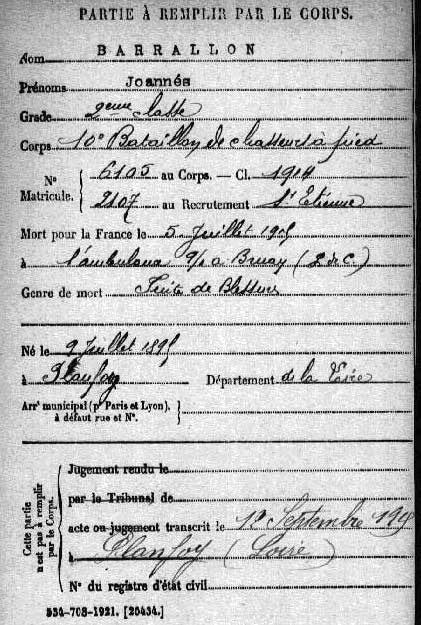 PARTIE À REMPLIR PAR LE CORPS.
Nom BARRALLON
Prénoms Joannés
Grade 2eme classe
Corps 10e Bataillon de chasseurs à pied
N° Matricule. { 6105 au Corps. — Cl. 1914
2107 au Recrutement St Etienne
Mort pour la France le 5 Juillet 1915
à l'ambulance 9/2 à Bruay (P. de C.)
Genre de mort Suite de Blessure
Né le 9 Juillet
à Planfoy Département de la Loire
Arrt municipal (pr Paris et Lyon), }
à défaut rue et N°.
Cette partie n'est pas à remplir par le Corps. {
Jugement rendu le
par le Tribunal de
acte ou jugement transcrit le 1er Septembre 1915
à Planfoy (Loire)
N° du registre d'état civil
534-708-1921. [26434.]